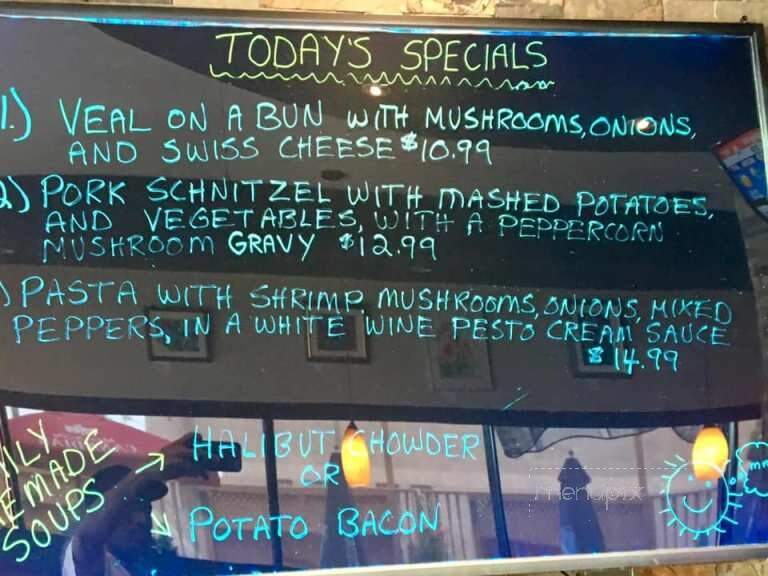 TODAY'S SPECIALS
1.) VEAL ON A BUN WITH MUSHROOMS, ONIONS,
AND SWISS CHEESE $10.99
2) PORK SCHNITZEL WITH MASHED POTATOES,
AND VEGETABLES, WITH A PEPPERCORN
MUSHROOM GRAVY $12.99
) PASTA WITH SHRIMP, MUSHROOMS, ONIONS, MIXED
PEPPERS, IN A WHITE WINE PESTO CREAM SAUCE
$14.99
HALIBUT CHOWDER
OR
POTATO BACON
SOUPS
menupix